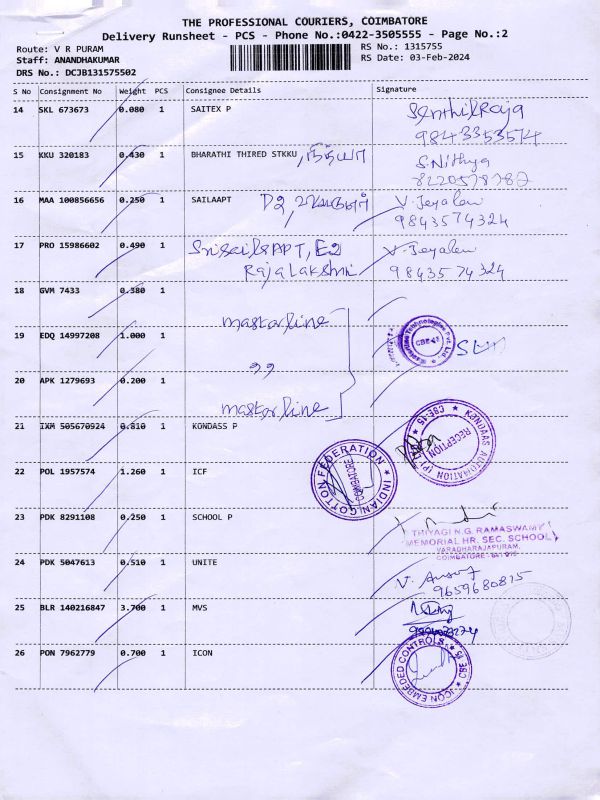 THE PROFESSIONAL COURIERS, COIMBATORE
Delivery Runsheet - PCS - Phone No.:0422-3505555 - Page No.:2
Route: V R PURAM
RS No.: 1315755
Staff: ANANDHAKUMAR
RS Date: 03-Feb-2024
DRS No.: DCJB131575502
S No Consignment No Weight PCS Consignee Details Signature
14 SKL 673673 0.080 1 SAITEX P SenthilRaja
9843353574
15 KKU 320183 0.430 1 BHARATHI THIRED STKKU, நித்யா S.Nithya
8220578782
16 MAA 100856656 0.250 1 SAILAAPT D2, V. Jeyalav
9843574324
17 PRO 15986602 0.490 1 Srisail APT, E2 V. Jeyalav
RajaLakshmi 9843574324
18 GVM 7433 0.380 1
mastorline
19 EDQ 14997208 1.000 1
,,
20 APK 1279693 0.200 1
mastorline
21 IXM 505670924 0.810 1 KONDASS P
KONDAAS AUTOMATION (P) CBE-45
RECEPTION
22 POL 1957574 1.260 1 ICF
INDIAN COTTON FEDERATION
COIMBATORE
23 PDK 8291108 0.250 1 SCHOOL P
THIYAGI N.G. RAMASWAMY
MEMORIAL HR. SEC. SCHOOL
VARADHARAJAPURAM,
COIMBATORE - 641 015
24 PDK 5047613 0.510 1 UNITE
9659680815
25 BLR 140216847 3.700 1 MVS
26 PON 7962779 0.700 1 ICON
ICON EMBEDED CONTROLS CBE-15